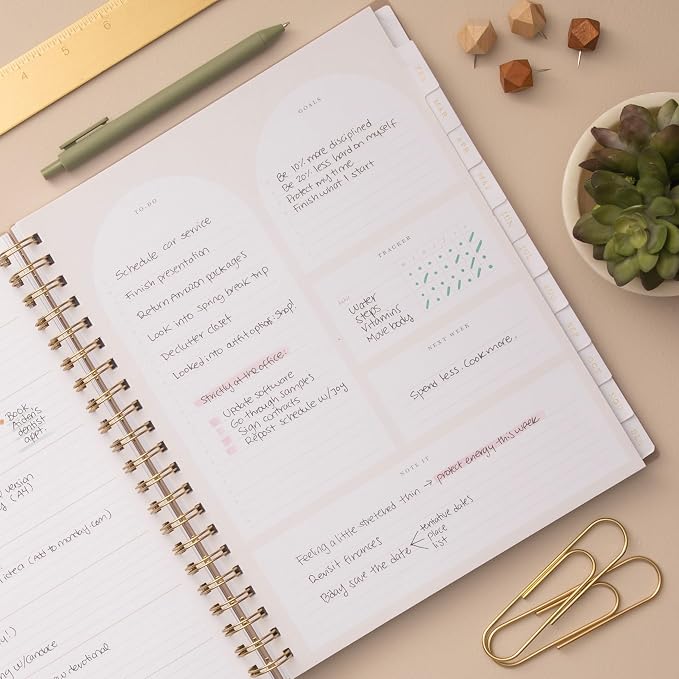 4 5 6
Book
Aiden's
dentist
appt.
version
(A4)
(Add to monday.com)
w/candace
devotional
TO-DO
Schedule car service
Finish presentation
Return Amazon packages
Look into spring break trip
Declutter closet
Looked into outfit options. Shop!
Strictly at the office:
Update software
Go through samples
Sign contracts
Repost schedule w/Joy
GOALS
Be 10% more disciplined
Be 20% less hard on myself
Protect my time
Finish what I start
TRACKER
Water
Steps
Vitamins
Move body
NEXT WEEK
Spend less. Cook more.
NOTE IT
Feeling a little stretched thin → protect energy this week
Revisit finances
Bday save the date
tentative dates
place
list
FEB
MAR
APR
MAY
JUN